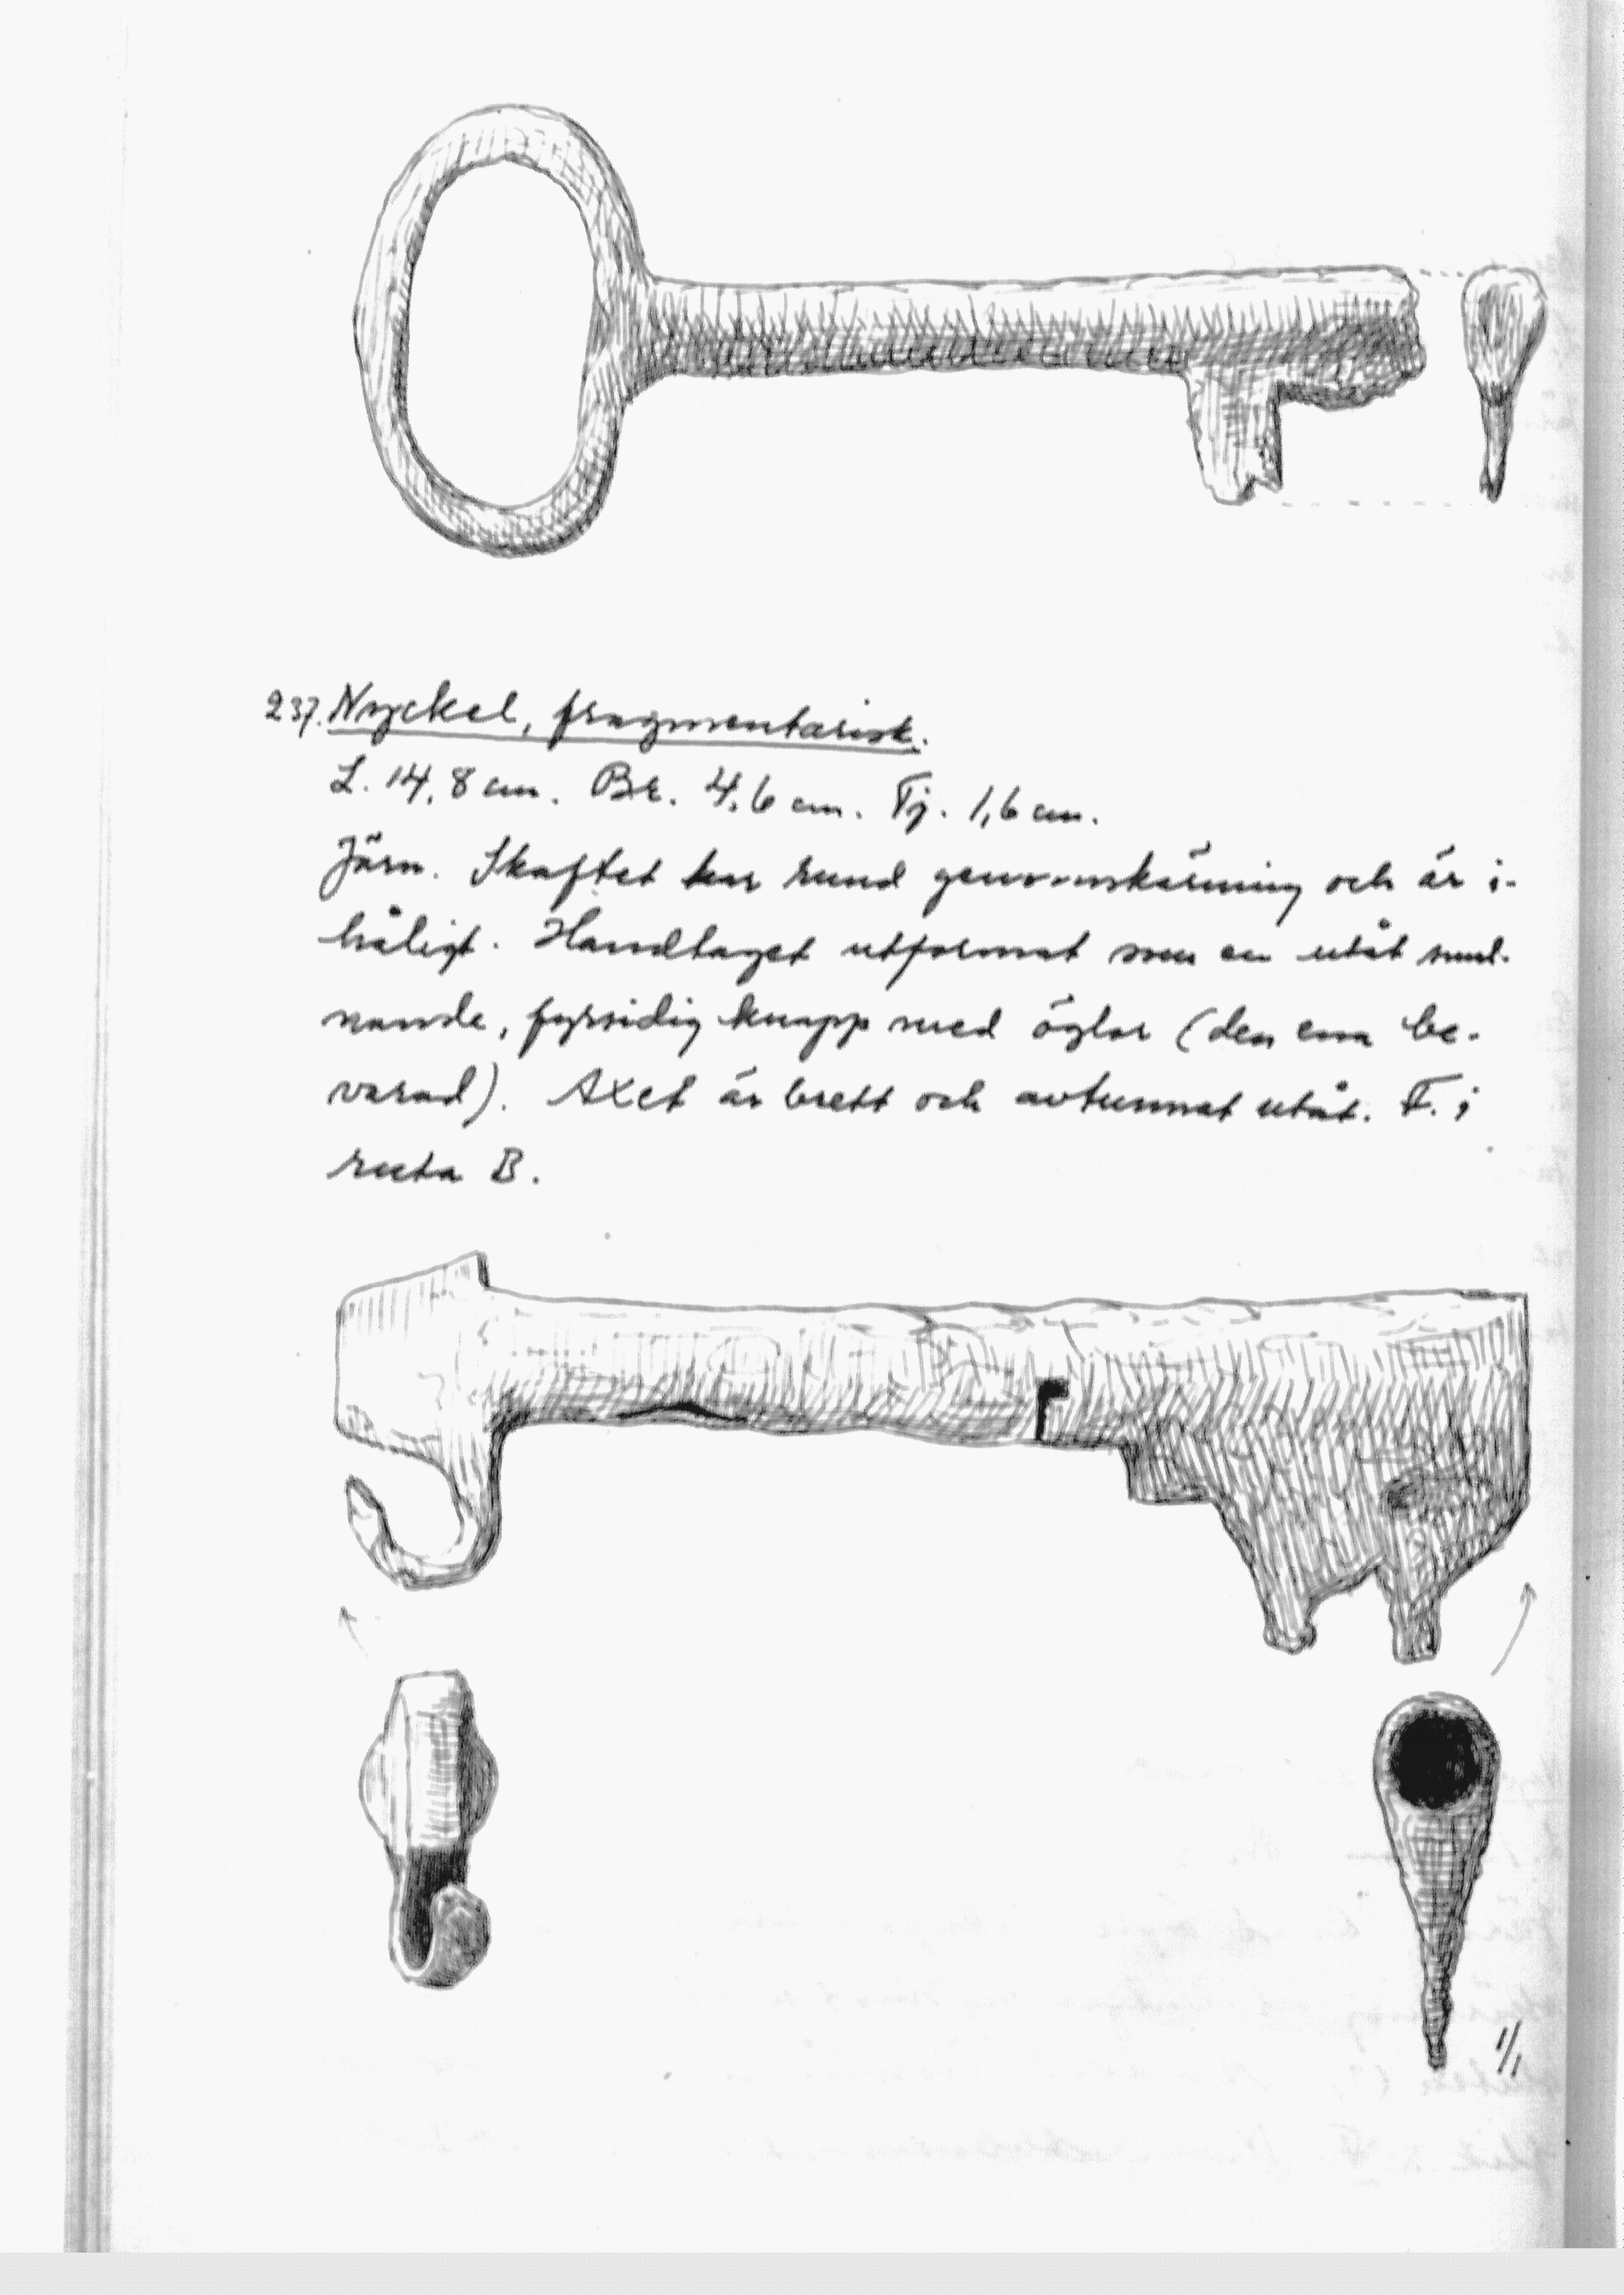 237. Nyckel, fragmentarisk.
L. 14,8 cm. Br. 4,6 cm. Tj. 1,6 cm.
Järn. Skaftet har rund genomskärning och är i-
håligt. Handtaget utformat som en utåt smal-
nande, fyrsidig knapp med öglor (den ena be-
varad). Axet är brett och avtunnat utåt. F. i
ruta B.
1/1